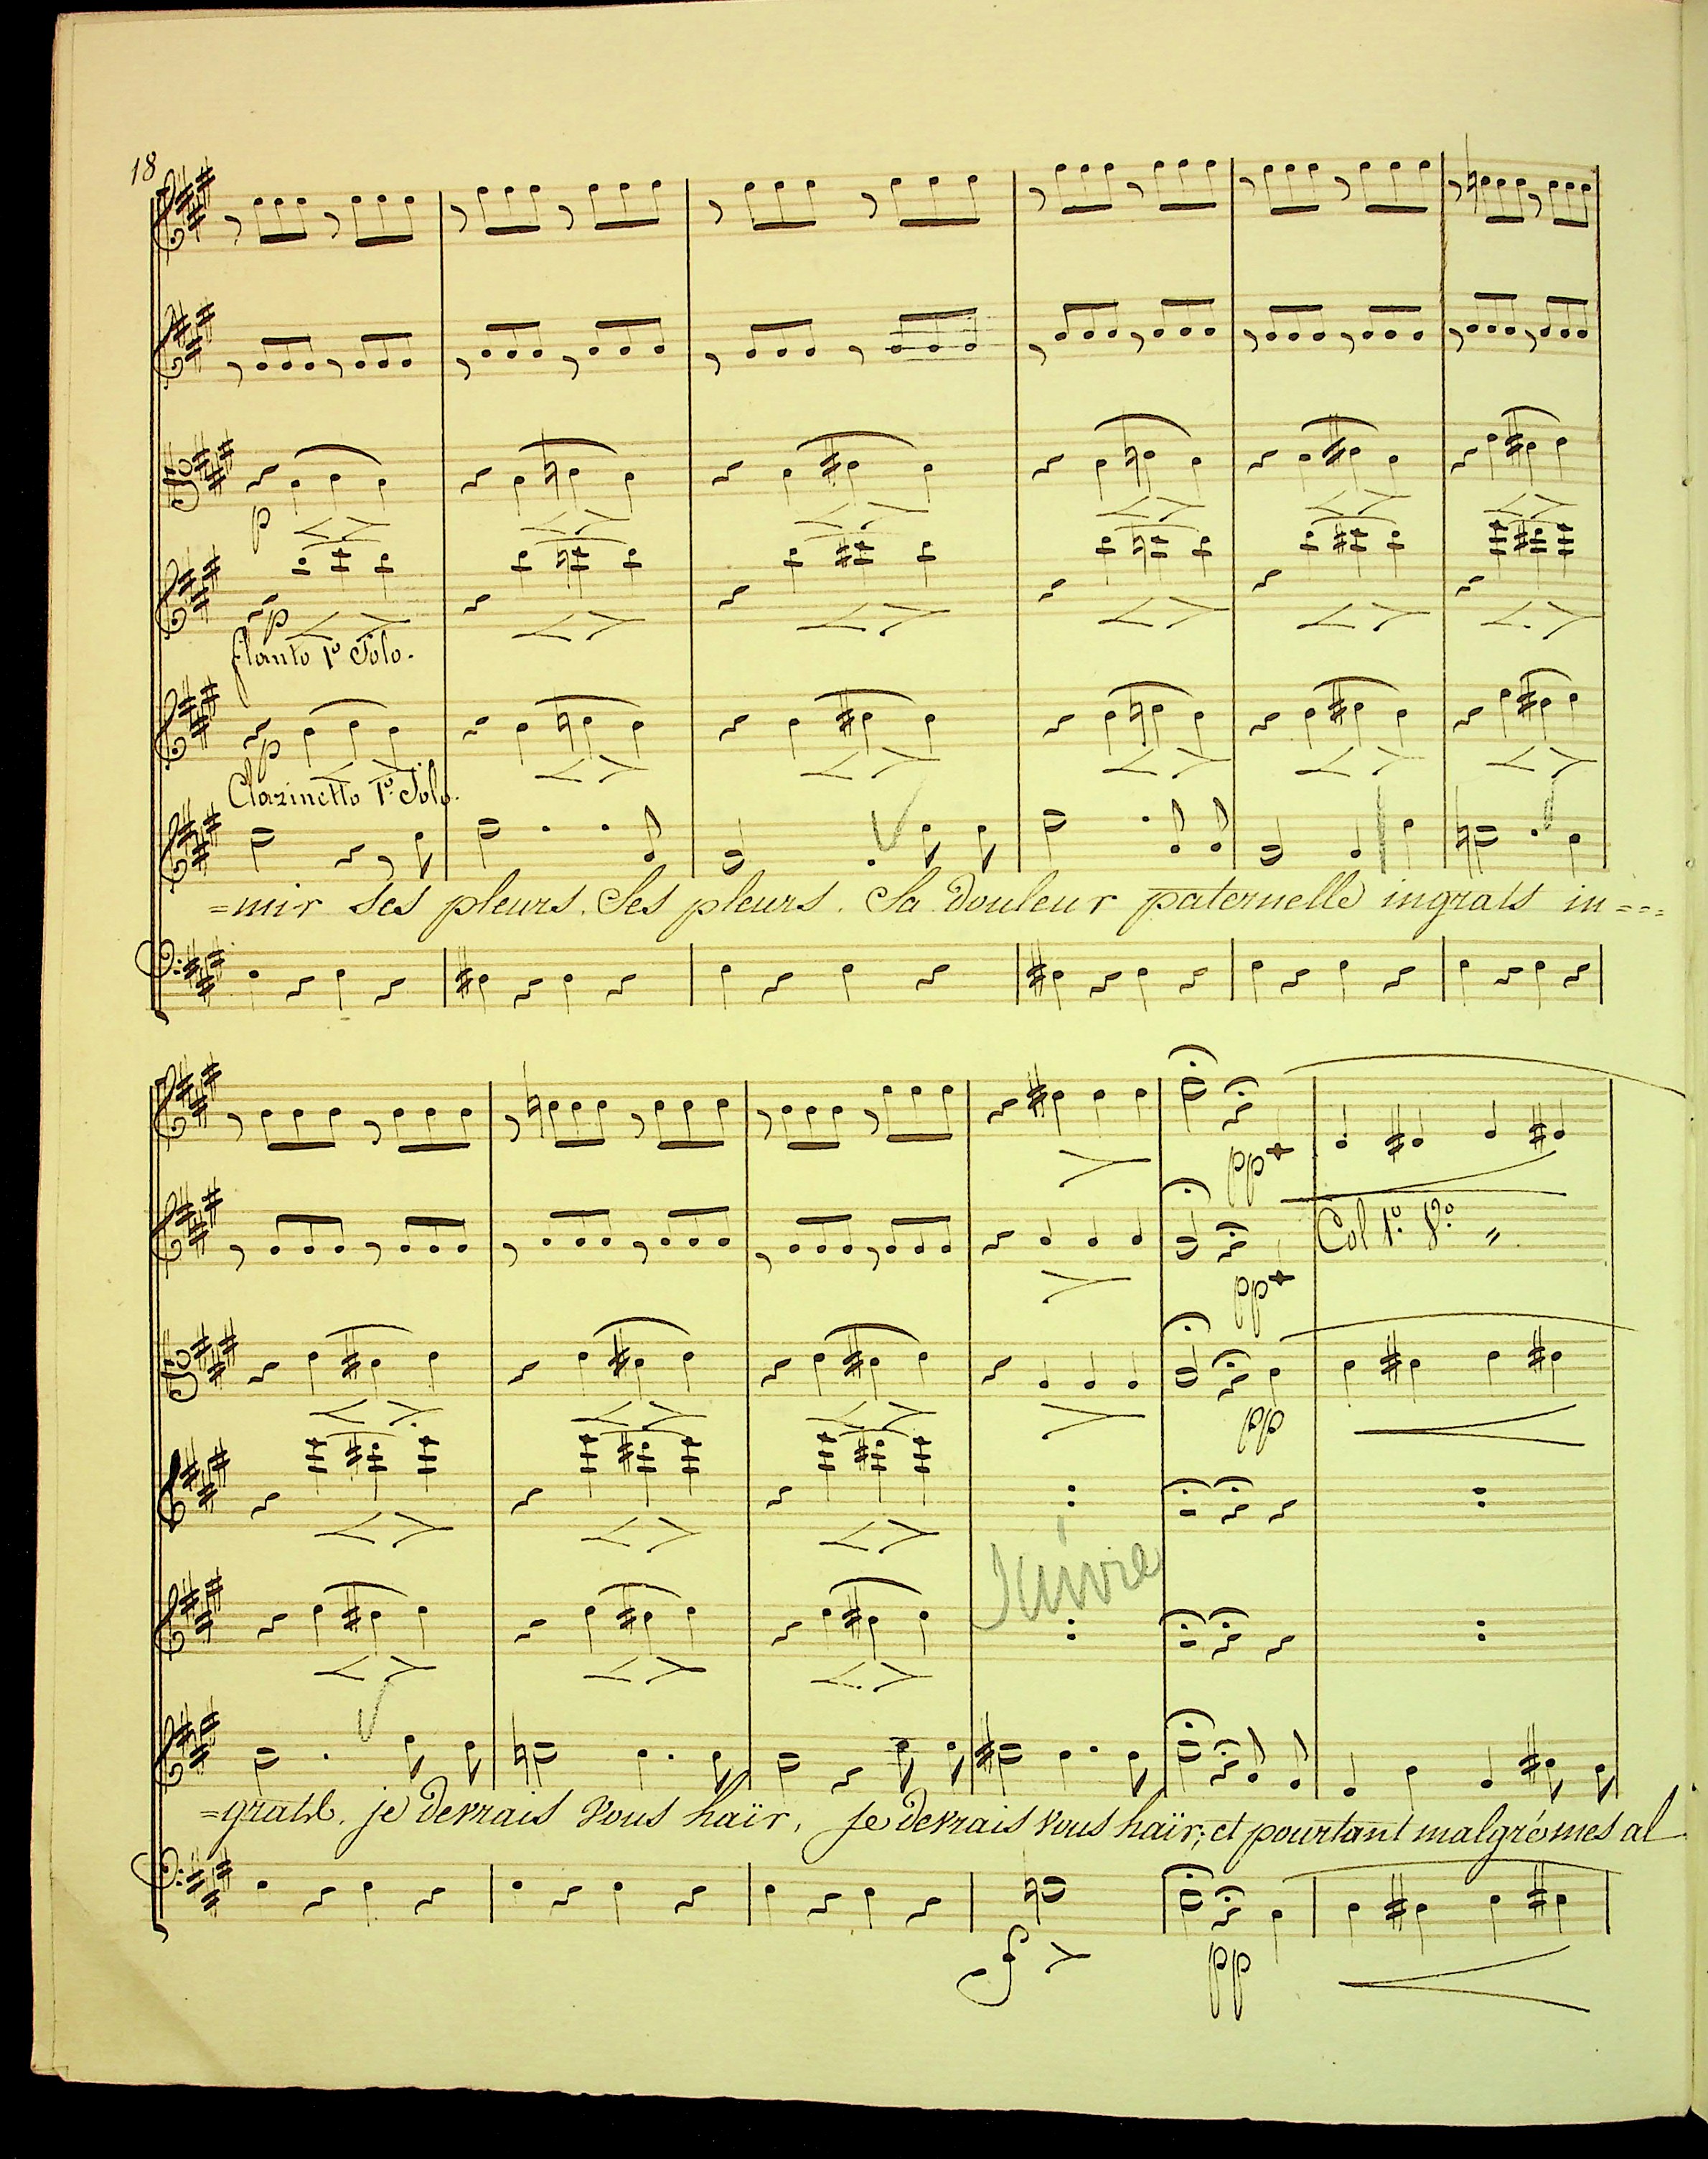 18
p
p
flauto 1º Solo.
p
Clarinetto 1º Solo.
=mir ses pleurs. Ses pleurs. Sa douleur paternelle ingrats in=
pp
Col 1º Vº "
pp
pp
Suivre
=grats. je devrais vous haïr, Je devrais vous haïr; et pourtant malgré mes al
sf
pp